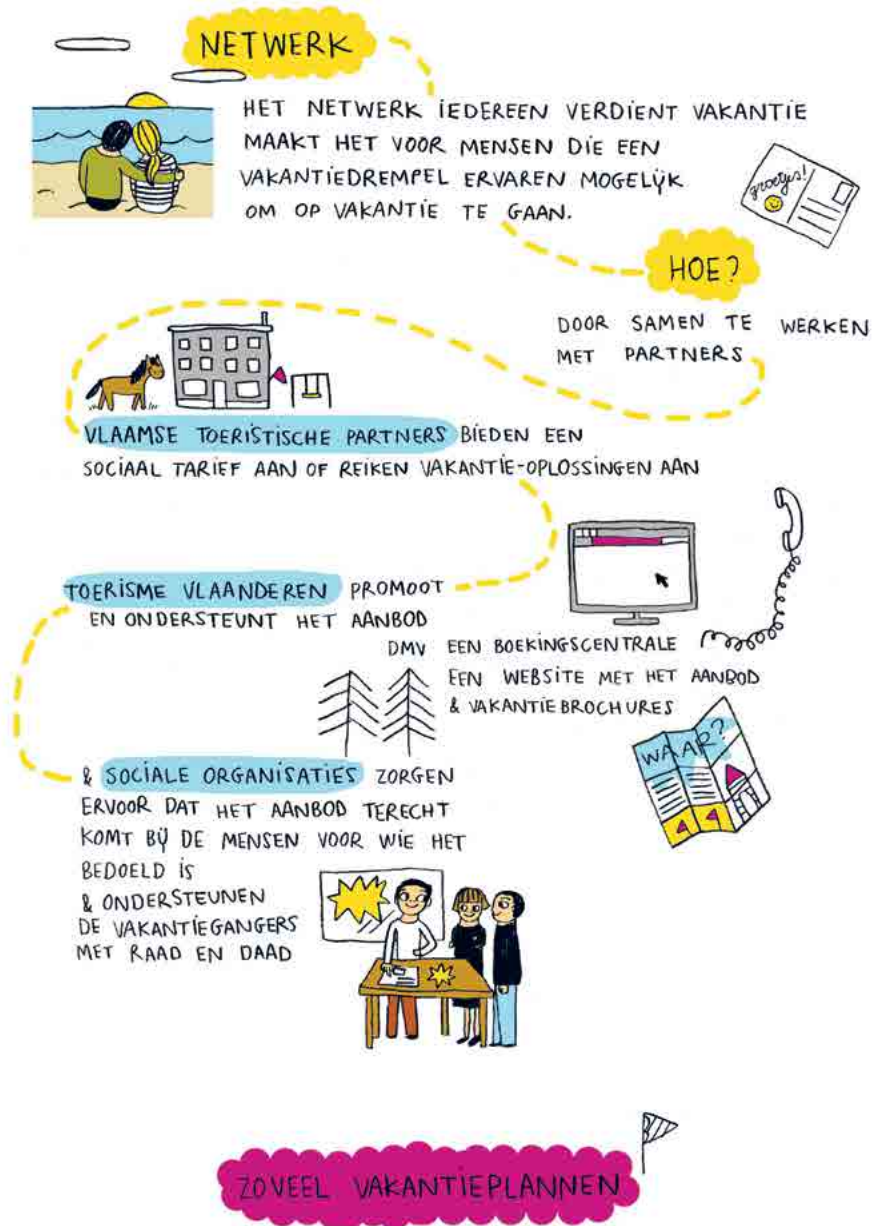 NETWERK
HET NETWERK IEDEREEN VERDIENT VAKANTIE
MAAKT HET VOOR MENSEN DIE EEN
VAKANTIEDREMPEL ERVAREN MOGELIJK
OM OP VAKANTIE TE GAAN.
groetjes!
HOE?
DOOR SAMEN TE WERKEN
MET PARTNERS
VLAAMSE TOERISTISCHE PARTNERS BIEDEN EEN
SOCIAAL TARIEF AAN OF REIKEN VAKANTIE-OPLOSSINGEN AAN
TOERISME VLAANDEREN PROMOOT
EN ONDERSTEUNT HET AANBOD
DMV EEN BOEKINGSCENTRALE
EEN WEBSITE MET HET AANBOD
& VAKANTIEBROCHURES
WAAR?
& SOCIALE ORGANISATIES ZORGEN
ERVOOR DAT HET AANBOD TERECHT
KOMT BIJ DE MENSEN VOOR WIE HET
BEDOELD IS
& ONDERSTEUNEN
DE VAKANTIEGANGERS
MET RAAD EN DAAD
ZOVEEL VAKANTIEPLANNEN